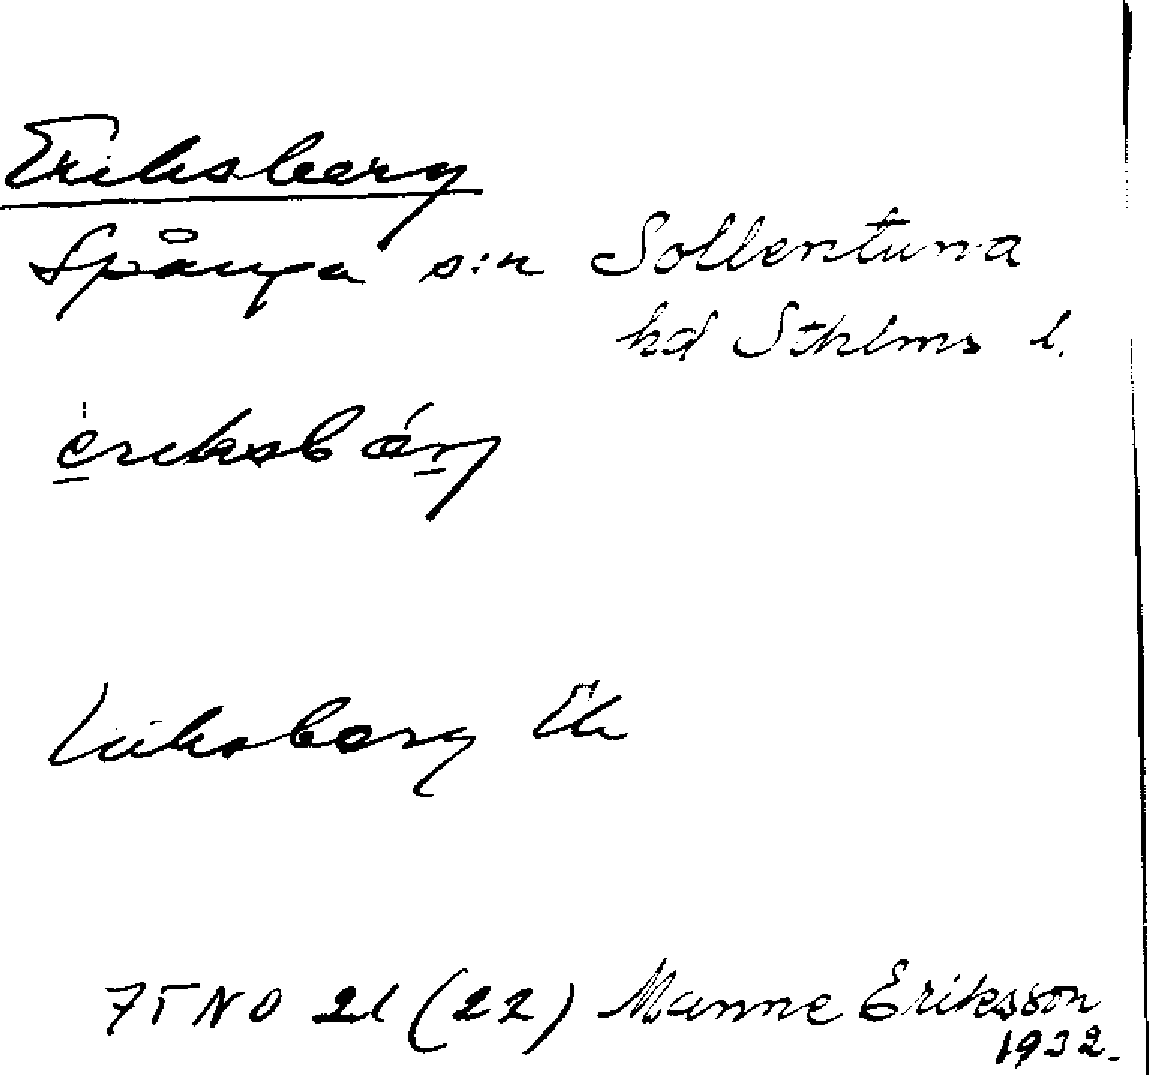 Eriksberg
Spånga s:n Sollentuna
hd Sthlms l.
eriksbärj
Eriksberg Ek
75 NO 21 (22) Manne Eriksson
1932.